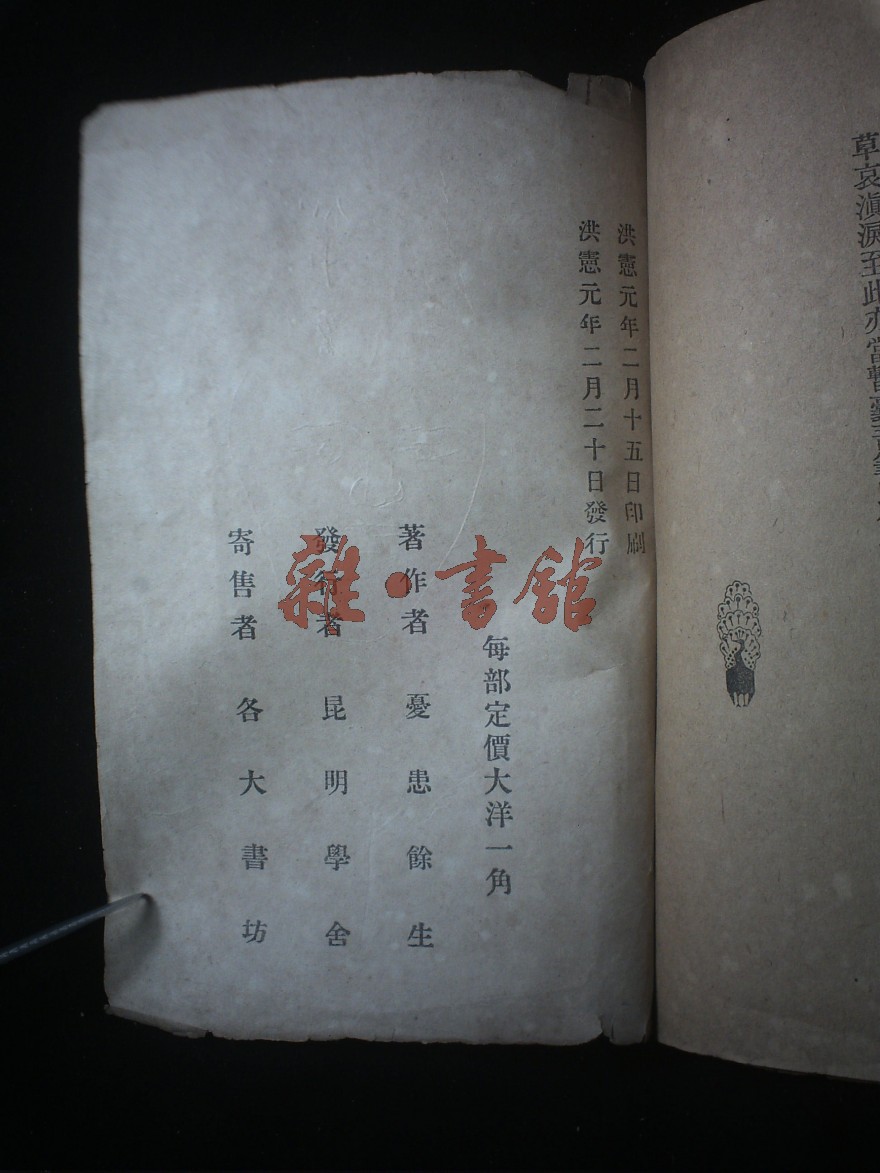 草哀滇淚至此亦當暫
洪憲元年二月十五日印刷
洪憲元年二月二十日發行
每部定價大洋一角
著作者 憂患餘生
發行者 昆明學舍
寄售者 各大書坊
雜·書館